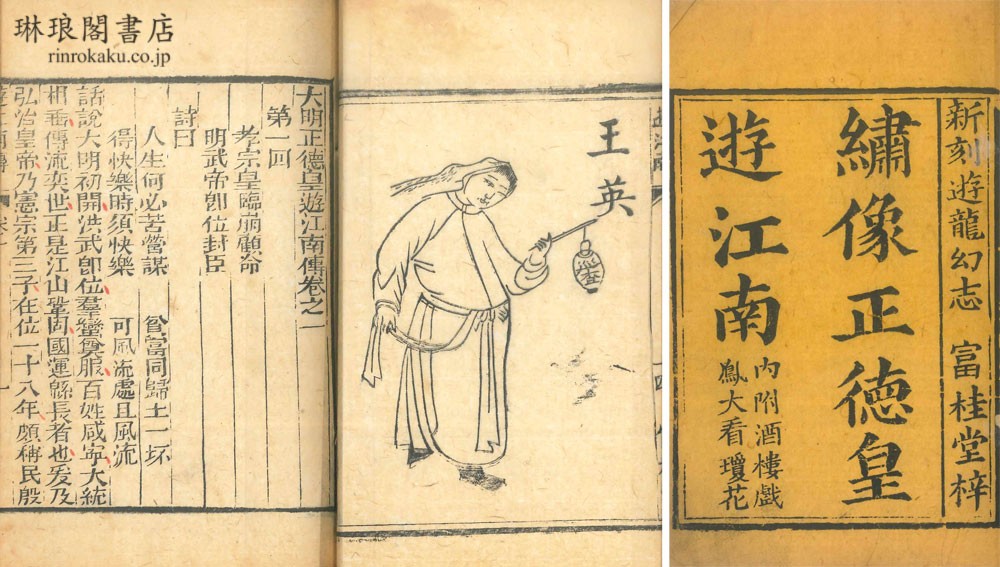 琳琅閣書店
rinrokaku.co.jp
大明正德皇遊江南傳卷之一
第一回
孝宗皇臨崩顧命
明武帝卽位封臣
詩曰
人生何必苦營謀
貧富同歸土一坏
得快樂時須快樂
可風流處且風流
話說大明初開洪武卽位羣蠻賓服百姓咸寧大統
相垂傳流奕世正是江山鞏固國運綿長者也爰及
弘治皇帝乃憲宗第三子在位一十八年頗稱民殷
王英
新刻遊龍幻志 富桂堂梓
繡像正德皇
遊江南
內附酒樓戲
鳳大看瓊花